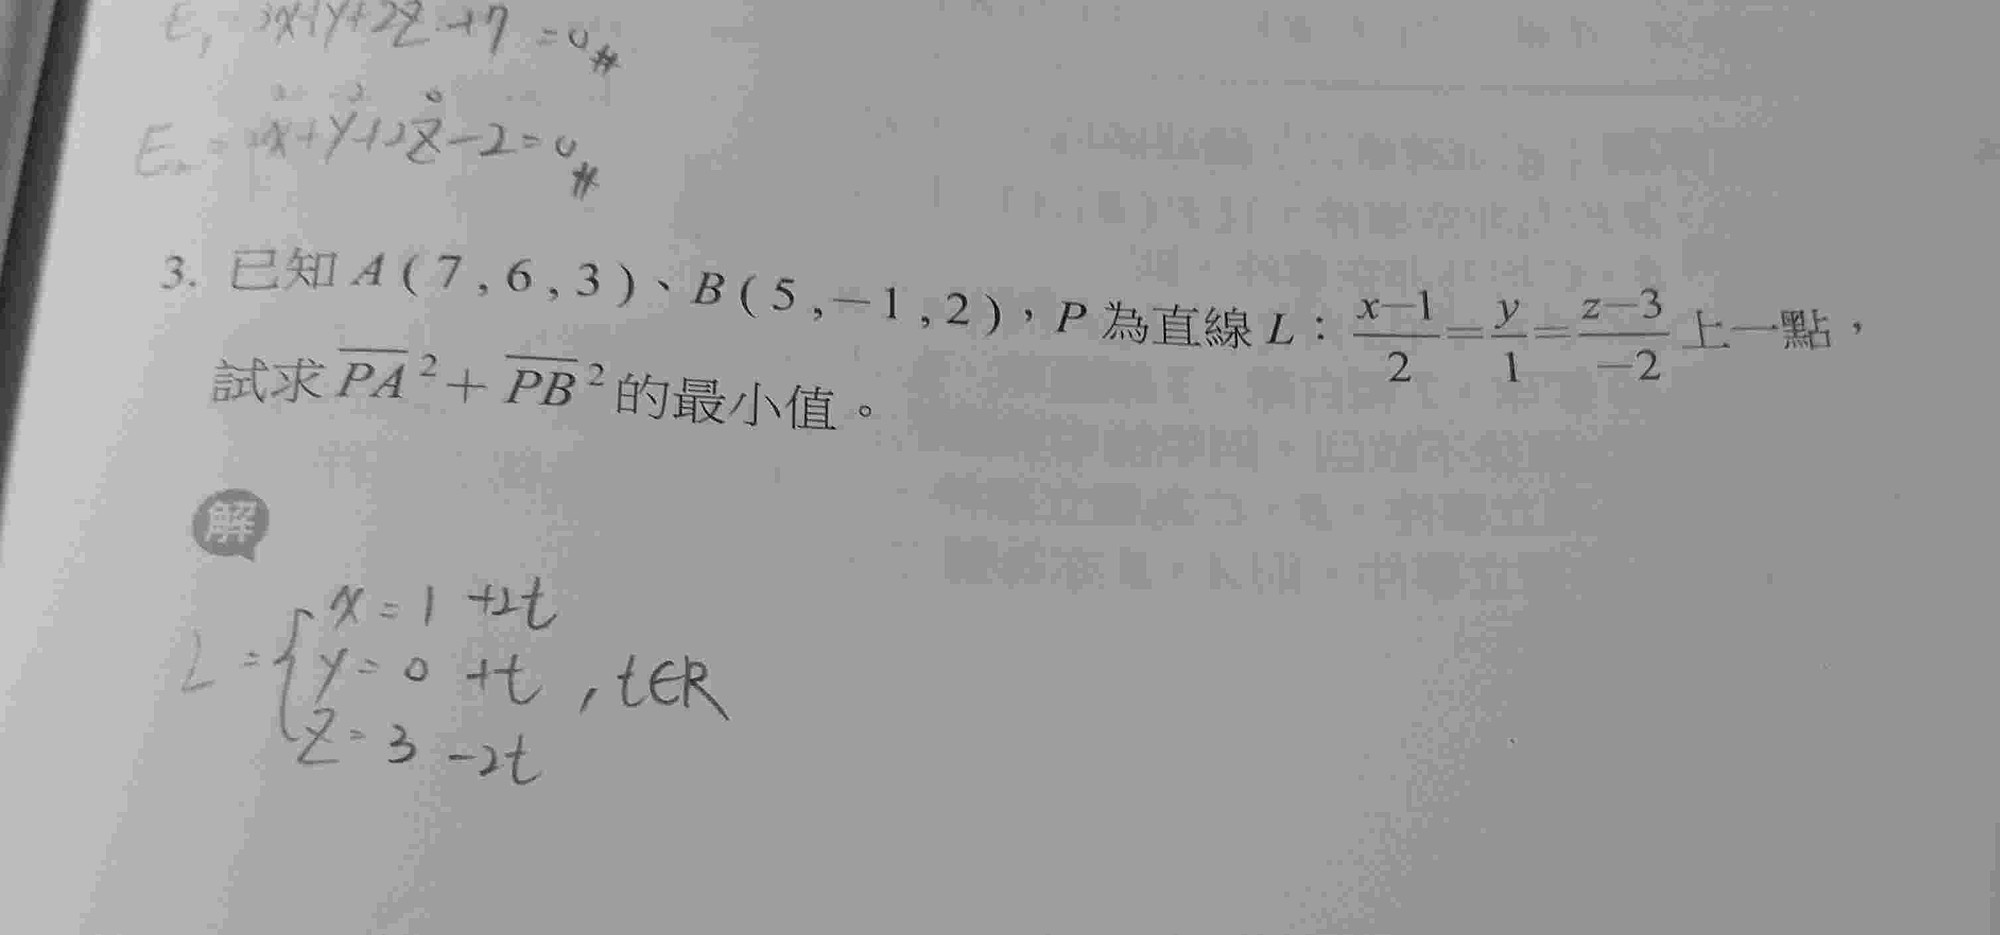 E₁ 3x+y+2z+7=0#
E₂=x+y+2z-2=0#
3. 已知 A(7,6,3)、B(5,-1,2),P 為直線 L:(x-1)/2=y/1=(z-3)/-2 上一點,
試求 PA²+PB² 的最小值。
解
L={x=1+2t
y=0+t,t∈R
z=3-2t